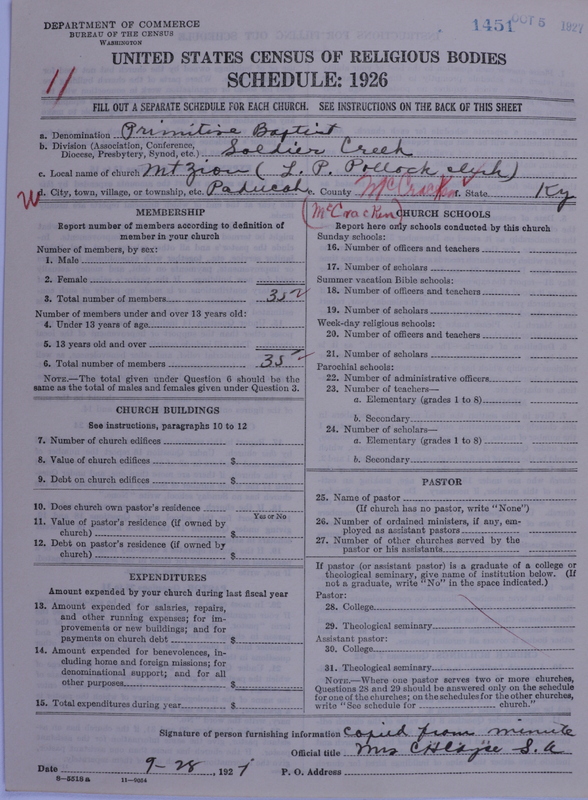 DEPARTMENT OF COMMERCE
BUREAU OF THE CENSUS
WASHINGTON
1451 OCT 5 1927
UNITED STATES CENSUS OF RELIGIOUS BODIES
SCHEDULE: 1926
11
FILL OUT A SEPARATE SCHEDULE FOR EACH CHURCH. SEE INSTRUCTIONS ON THE BACK OF THIS SHEET
a. Denomination Primitive Baptist
b. Division (Association, Conference, Diocese, Presbytery, Synod, etc.) Soldier Creek
c. Local name of church Mt Zion ( L. P. Pollock clerk)
d. City, town, village, or township, etc. Paducah e. County McCracken f. State Ky
(McCracken)
MEMBERSHIP
Report number of members according to definition of
member in your church
Number of members, by sex:
1. Male
2. Female
3. Total number of members 35
Number of members under and over 13 years old:
4. Under 13 years of age
5. 13 years old and over
6. Total number of members 35
NOTE.—The total given under Question 6 should be the
same as the total of males and females given under Question 3.
CHURCH BUILDINGS
See instructions, paragraphs 10 to 12
7. Number of church edifices
8. Value of church edifices $
9. Debt on church edifices $
10. Does church own pastor's residence
Yes or No
11. Value of pastor's residence (if owned by
church) $
12. Debt on pastor's residence (if owned by
church) $
EXPENDITURES
Amount expended by your church during last fiscal year
13. Amount expended for salaries, repairs,
and other running expenses; for im-
provements or new buildings; and for
payments on church debt $
14. Amount expended for benevolences, in-
cluding home and foreign missions; for
denominational support; and for all
other purposes $
15. Total expenditures during year $
CHURCH SCHOOLS
Report here only schools conducted by this church
Sunday schools:
16. Number of officers and teachers
17. Number of scholars
Summer vacation Bible schools:
18. Number of officers and teachers
19. Number of scholars
Week-day religious schools:
20. Number of officers and teachers
21. Number of scholars
Parochial schools:
22. Number of administrative officers
23. Number of teachers—
a. Elementary (grades 1 to 8)
b. Secondary
24. Number of scholars—
a. Elementary (grades 1 to 8)
b. Secondary
PASTOR
25. Name of pastor
(If church has no pastor, write "None")
26. Number of ordained ministers, if any, em-
ployed as assistant pastors
27. Number of other churches served by the
pastor or his assistants
If pastor (or assistant pastor) is a graduate of a college or
theological seminary, give name of institution below. (If
not a graduate, write "No" in the space indicated.)
Pastor:
28. College
29. Theological seminary
Assistant pastor:
30. College
31. Theological seminary
NOTE.—Where one pastor serves two or more churches,
Questions 28 and 29 should be answered only on the schedule
for one of the churches; on the schedules for the other churches,
write "See schedule for church."
Signature of person furnishing information Copied from minute
Official title Mrs S. A
Date 9-28, 1927 P. O. Address
8-5519a 11-9054